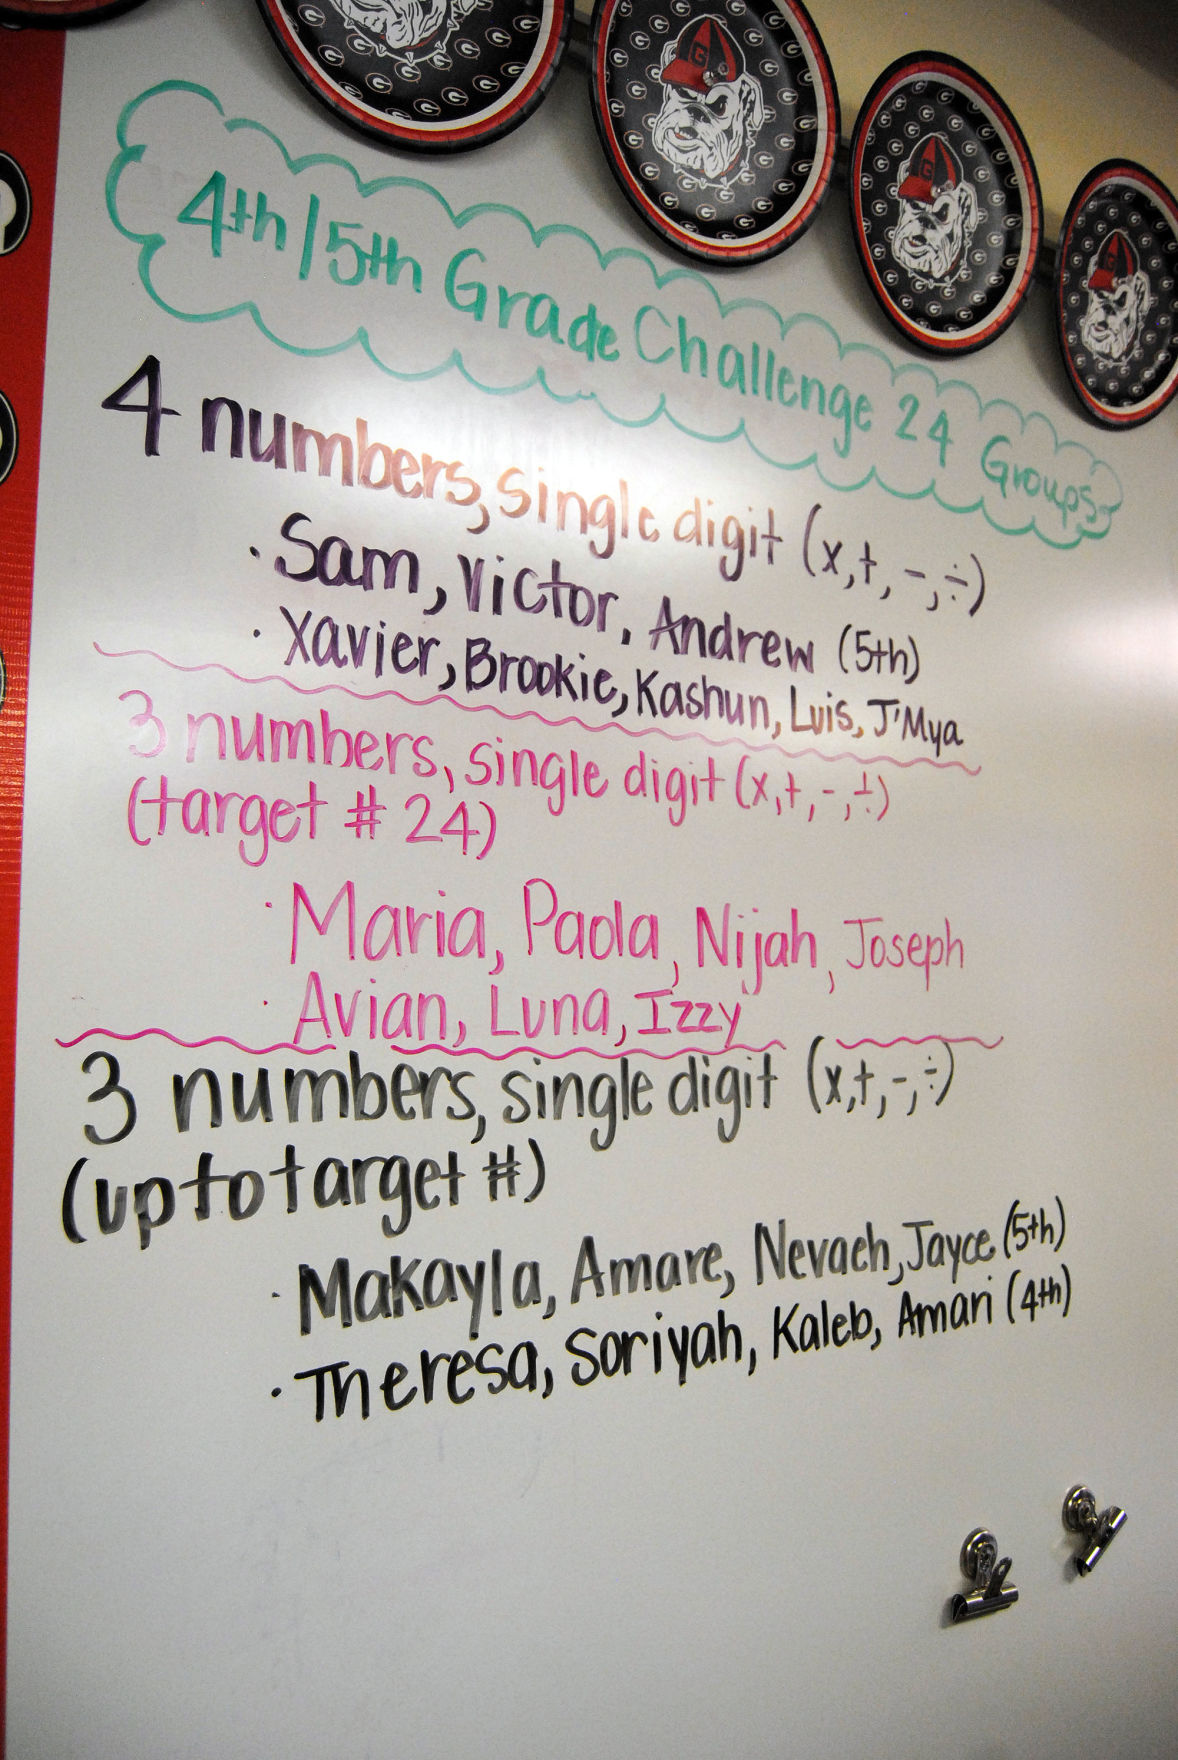 4th/5th Grade Challenge 24 Groups
4 numbers, single digit (x,+,-,÷)
· Sam, Victor, Andrew (5th)
· Xavier, Brookie, Kashun, Luis, J'Mya
3 numbers, single digit (x,+,-,÷)
(target # 24)
· Maria, Paola, Nijah, Joseph
· Avian, Luna, Izzy
3 numbers, single digit (x,+,-,÷)
(up to target #)
· Makayla, Amare, Nevaeh, Jayce (5th)
· Theresa, Soriyah, Kaleb, Amari (4th)